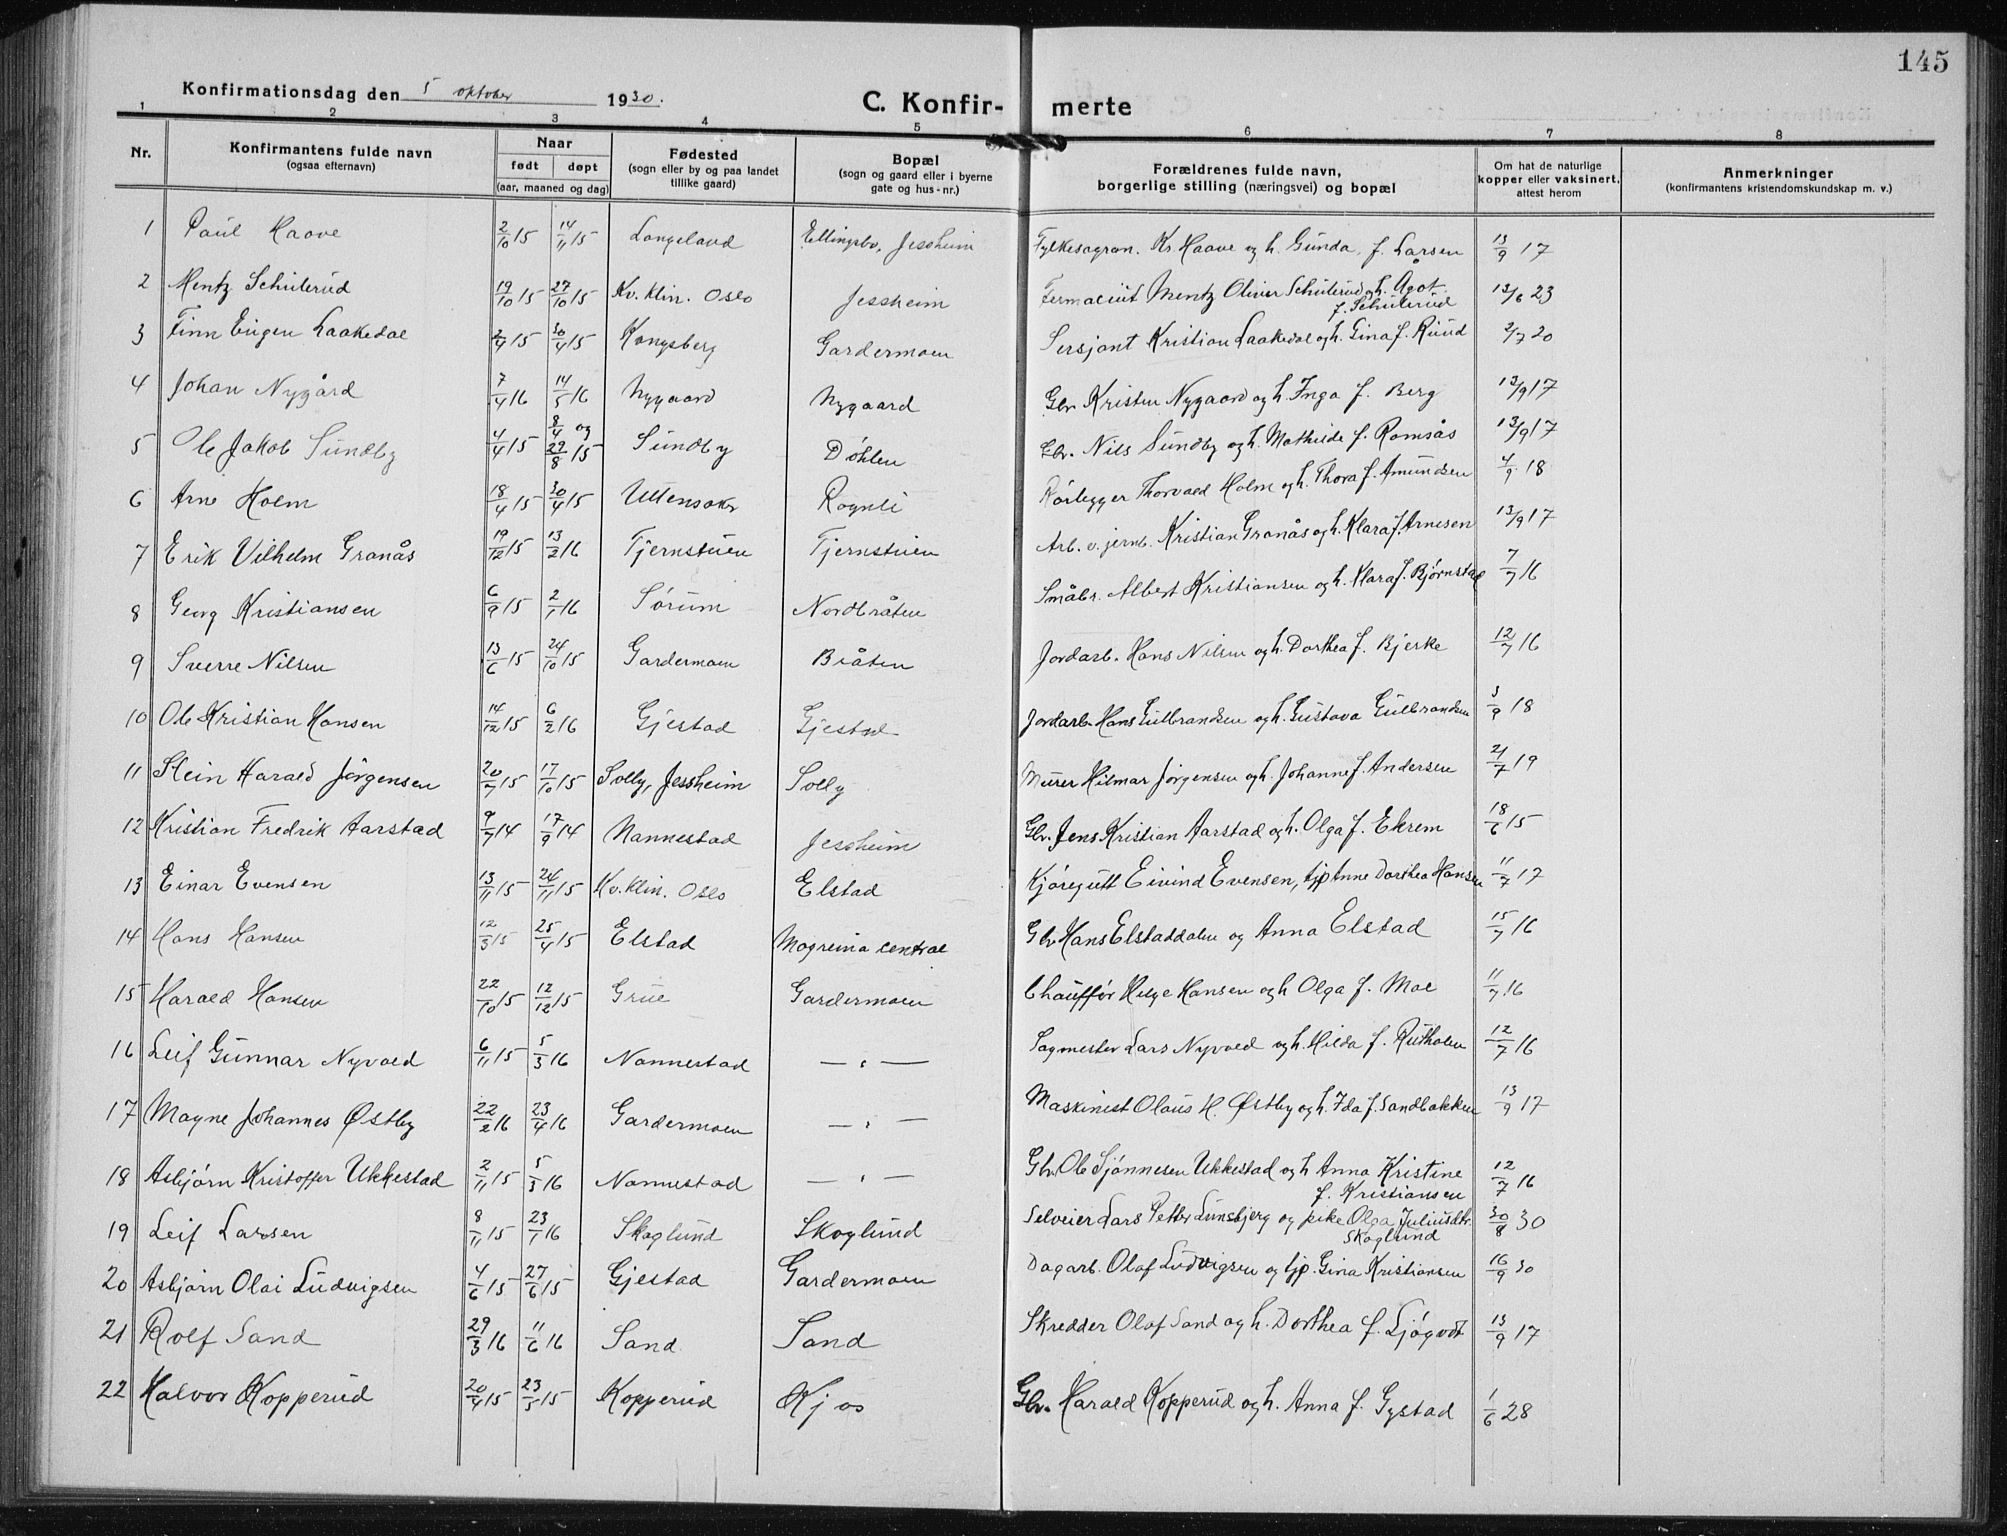 145
Konfirmationsdag den 5 oktober 1930.
C. Konfir- merte
1 2 3 4 5 6 7 8
Nr. Konfirmantens fulde navn (ogsaa efternavn) Naar født døpt (aar, maaned og dag) Fødested (sogn eller by og paa landet tillike gaard) Bopæl (sogn og gaard eller i byerne gate og hus-nr.) Forældrenes fulde navn, borgerlige stilling (næringsvei) og bopæl Om hat de naturlige kopper eller vaksinert, attest herom Anmerkninger (konfirmantens kristendomskundskap m. v.)
1 Paul Haave 2/10 15 14/11 15 Langeland Ellingsbo, Jessheim Fylkesagron. Kr. Haave og h. Gunda f. Larsen 13/9 17
2 Mentz Schulerud 19/10 15 27/10 15 Kv. klin. Oslo Jessheim Mentz Oliver Schulerud og h. Ågot f. Schulerud 13/6 23
3 Finn Eugen Laakedal 2/4 15 30/4 15 Kongsberg Gardermoen Sersjant Kristian Laakedal og h. Gina f. Ruud 2/7 20
4 Johan Nygård 7/4 16 14/5 16 Nygaard Nygaard Gbr. Kristen Nygaard og h. Inga f. Berg 13/9 17
5 Ole Jakob Sundby 4/4 15 8/4 og 29/8 15 Sundby Døhlen Gbr. Nils Sundby og h. Mathilde f. Romsås 13/9 17
6 Arne Holm 18/4 15 30/4 15 Ullensaker Rognli Rørlegger Thorvald Holm og h. Thora f. Amundsen 4/9 18
7 Erik Vilhelm Granås 19/12 15 13/2 16 Tjernstuen Tjernstuen Arb. v. jernb. Kristian Granås og h. Klara f. Arnesen 13/9 17
8 Georg Kristiansen 6/9 15 2/1 16 Sørum Nordbråten Småbr. Albert Kristiansen og h. Klara f. Bjørnstad 7/7 16
9 Sverre Nilsen 13/6 15 24/10 15 Gardermoen Bråten Jordarb. Hans Nilsen og h. Dorthea f. Bjerke 12/7 16
10 Ole Kristian Hansen 14/12 15 6/2 16 Gjestad Gjestad Jordarb. Hans Gulbrandsen og h. Gustava Gulbrandsen 3/9 18
11 Stein Harald Jørgensen 20/7 15 17/10 15 Solly, Jessheim Solly Murer Hilmar Jørgensen og h. Johanne f. Andersen 21/7 19
12 Kristian Fredrik Aarstad 9/7 14 17/9 14 Nannestad Jessheim Gbr. Jens Kristian Aarstad og h. Olga f. Ekrem 18/6 15
13 Einar Evensen 13/11 15 24/11 15 Kv. klin. Oslo Elstad Kjøregutt Eivind Evensen, tjp Anne Dorthea Hansen 11/7 17
14 Hans Hansen 12/3 15 25/4 15 Elstad Mogreina central Gbr Hans Elstaddalen og Anna Elstad 15/7 16
15 Harald Hansen 22/10 15 12/12 15 Grue Gardermoen Chauffør Helge Hansen og h Olga f. Moe 11/7 16
16 Leif Gunnar Nyvold 6/11 15 5/3 16 Nannestad — " — Sagmester Lars Nyvold og h. Hilda f. Rutholen 12/7 16
17 Magne Johannes Østby 22/2 16 23/4 16 Gardermoen — " — Maskinist Olaus H. Østby og h. Ida f. Sandbakken 13/9 17
18 Asbjørn Kristoffer Ukkestad 2/11 15 5/3 16 Nannestad — " — Gbr. Ole Sjønnesen Ukkestad og h Anna Kristine f. Kristiansen 12/7 16
19 Leif Larsen 8/11 15 23/1 16 Skoglund Skoglund Selveier Lars Petter Lunsbjerg og pike Olga Juliusdtr. Skoglund 30/8 30
20 Asbjørn Olai Ludvigsen 4/6 15 27/6 15 Gjestad Gardermoen Dagarb. Olaf Ludvigsen og tjp. Gina Kristiansen 16/9 30
21 Rolf Sand 29/3 16 11/6 16 Sand Sand Skredder Olaf Sand og h. Dorthea f. Ljøgodt 13/9 17
22 Halvor Kopperud 20/4 15 23/5 15 Kopperud Kjos Gbr. Harald Kopperud og h. Anna f. Gystad 1/6 28